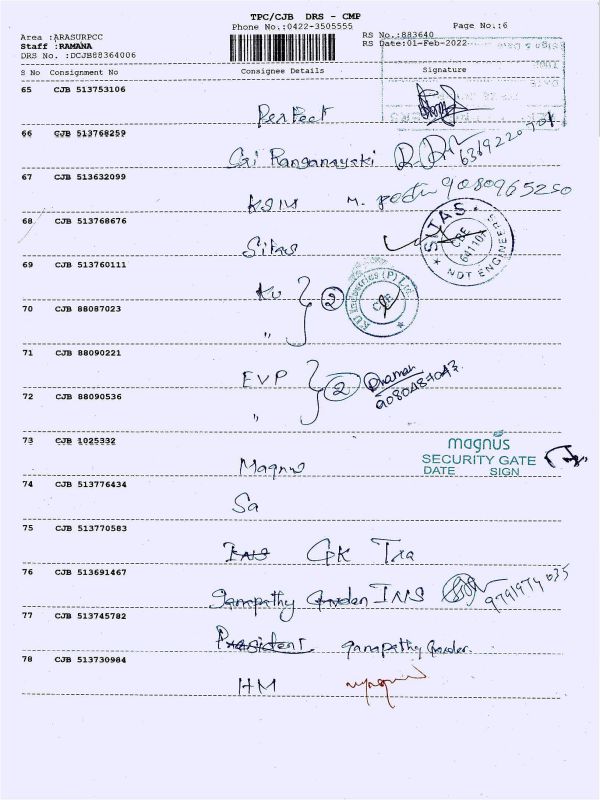 TPC/CJB DRS - CMP
Phone No.:0422-3505555
Page No.:6
Area :ARASURPCC
Staff :RAMANA
DRS No. :DCJB88364006
RS No.:883640
RS Date:01-Feb-2022
S No Consignment No Consignee Details Signature
65 CJB 513753106
Perfect
66 CJB 513768259
Sri Ranganayaki 6369220701
67 CJB 513632099
KSIM 9080965250
68 CJB 513768676
Sitas
SITAS
CBE
641107
NDT ENGINEERS
69 CJB 513760111
KU 2
KU Industries (P) Ltd.
CBE
70 CJB 88087023
"
71 CJB 88090221
EVP 2
9080487043
72 CJB 88090536
"
73 CJB 1025332
Magnus
magnus
SECURITY GATE
DATE SIGN
74 CJB 513776434
Sa
75 CJB 513770583
GK Tra
76 CJB 513691467
Ganapathy Garden INS
77 CJB 513745782
President ganapathy Garden.
78 CJB 513730984
HM